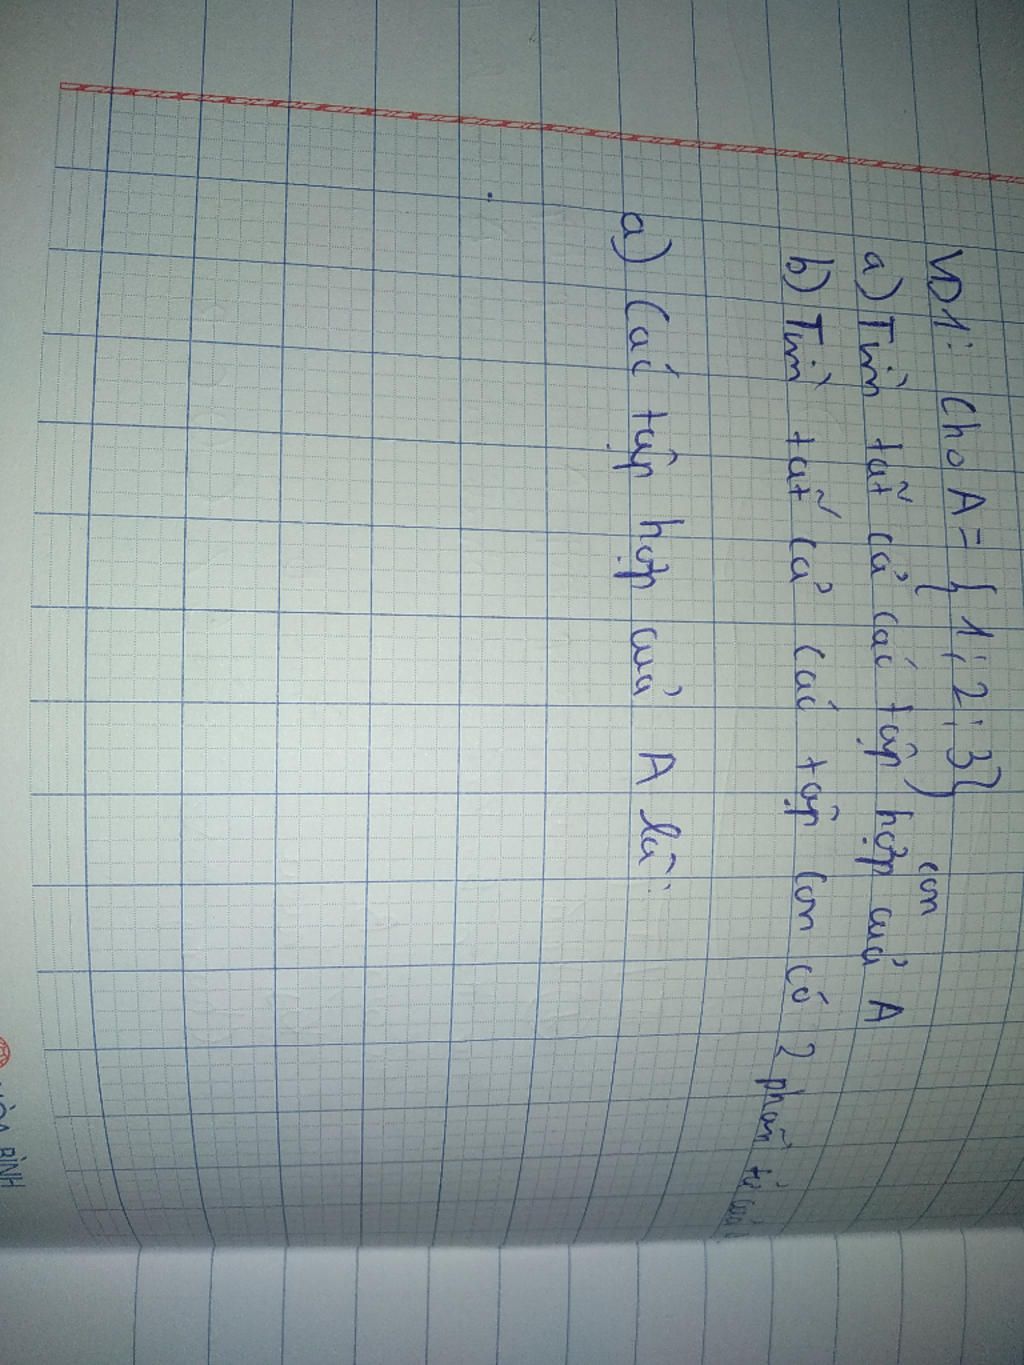 VD1: Cho A = { 1 ; 2 ; 3}
a) Tìm tất cả các tập hợp con của A
b) Tìm tất cả các tập con có 2 phần tử của
a) Các tập hợp của A là:
HÒA BÌNH